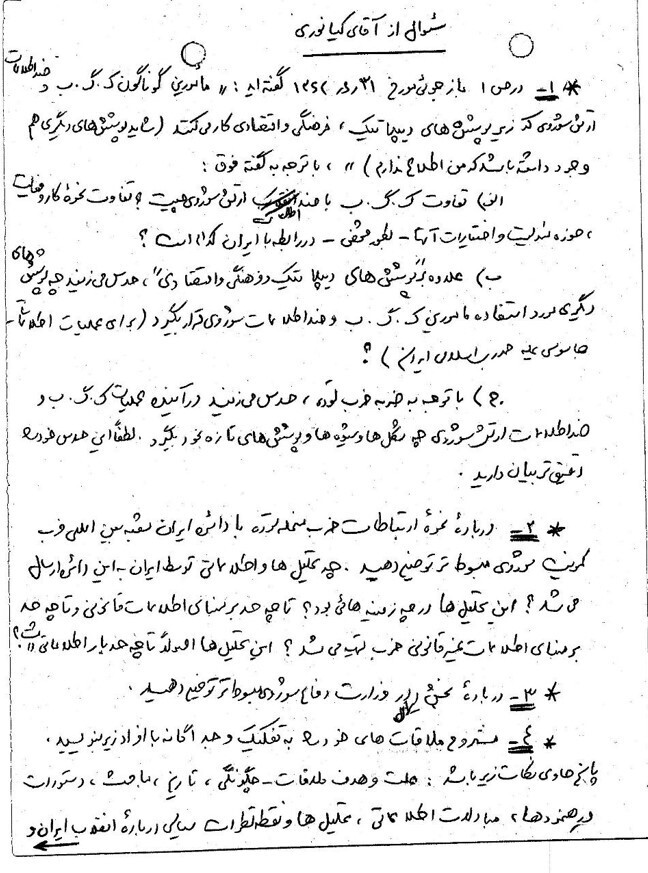 سئوال از آقای کیانوری
* ۱- در ص ۱ بازجوئی مورخ ۳۱ر۳ر ۱۳۶۲ گفته اید: " مأمورین گوناگون ک.گ.ب و ضد اطلاعات
ارتش شوروی که زیر پوشش های دیپلماتیک، فرهنگی و اقتصادی کار می کنند (شاید پوشش های دیگری هم
وجود داشته باشد که من اطلاع ندارم) "، با توجه به گفته فوق:
الف) تفاوت ک.گ.ب با ضد اطلاعات ارتش شوروی چیست؟ تفاوت نحوهٔ کار و فعالیت
، حوزه مسئولیت و اختیارات آنها - بطور مشخص - در رابطه با ایران کدام است؟
ب) علاوه بر "پوشش های دیپلماتیک و فرهنگی و اقتصادی"، حدس می زنید چه پوشش های
دیگری مورد استفاده مأمورین ک.گ.ب و ضد اطلاعات شوروی قرار بگیرد (برای عملیات اطلاعاتی -
جاسوسی علیه جمهوری اسلامی ایران)؟
ج) با توجه به ضربه حزب توده، حدس می زنید در آینده عملیات ک.گ.ب و
ضد اطلاعات ارتش شوروی چه شکل ها و شیوه ها و پوشش های تازه بخود بگیرد. لطفاً این حدس خود را
دقیق تر بیان دارید.
* ۲- دربارهٔ نحوهٔ ارتباطات حزب منحله توده با دائره ایران شعبه بین المللی حزب
کمونیست شوروی مبسوط تر توضیح دهید. چه تحلیل ها و اطلاعاتی توسط ایران به این دائره ارسال
می شد؟ این تحلیل ها در چه زمینه هائی بود؟ تا چه حد بر مبنای اطلاعات قانونی و تا چه حد
بر مبنای اطلاعات غیر قانونی حزب تهیه می شد؟ این تحلیل ها اصولاً تا چه حد بار اطلاعاتی داشت؟
* ۳- دربارهٔ بخش وزارت دفاع شوروی مبسوط تر توضیح دهید.
* ۴- مشروح ملاقات های خود را به تفکیک و جداگانه با افراد زیر بنویسید.
پاسخ حاوی نکات زیر باشد: علت و هدف ملاقات - چگونگی، تاریخ، مباحث، دستورات
و رهنمودها، مبادلات اطلاعاتی، تحلیل ها و نقطه نظرات سیاسی دربارهٔ انقلاب ایران و